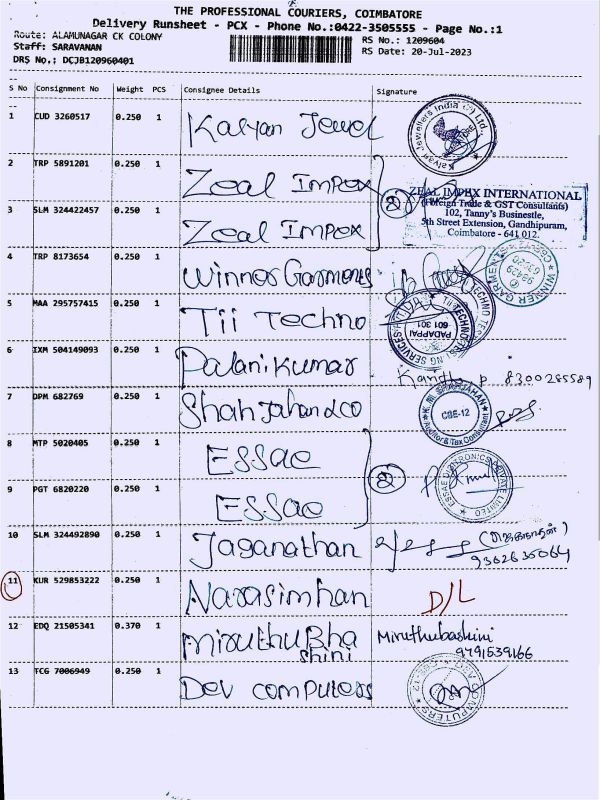 THE PROFESSIONAL COURIERS, COIMBATORE
Delivery Runsheet - PCX - Phone No.:0422-3505555 - Page No.:1
Route: ALAMUNAGAR CK COLONY
RS No.: 1209604
Staff: SARAVANAN
RS Date: 20-Jul-2023
DRS No.: DCJB120960401
S No Consignment No Weight PCS Consignee Details Signature
1 CUD 3260517 0.250 1 Kalyan Jewel
Kalyan Jewellers India Ltd.
2 TRP 5891201 0.250 1 Zeal Impex
2
ZEAL IMPEX INTERNATIONAL
(Foreign Trade & GST Consultants)
102, Tanny's Businestle,
5th Street Extension, Gandhipuram,
Coimbatore - 641 012.
3 SLM 324422457 0.250 1 Zeal Impex
4 TRP 8173654 0.250 1 Winner Garments
WINNER GARMENTS
5 MAA 295757415 1 0.250 1 Tii Techno
PADAPPAI
601 301
6 IXM 504149093 0.250 1 Palanikumar
8300285589
7 DPM 682769 0.250 1 Shah Jahan & co
K.M. SHAHJAHAN
CBE-12
Auditor & Tax Consultant
8 MTP 5020405 0.250 1 Essae
2
ESSAE DIGITRONICS PRIVATE LIMITED
9 PGT 6820220 0.250 1 Essae
10 SLM 324492890 0.250 1 Jaganathan
9362635064
11 KUR 529853222 0.250 1 Narasimhan
D/L
12 EDQ 21505341 0.370 1 Miruthu Bha
shini
Miruthubashini
9791539166
13 TCG 7006949 0.250 1 Dev computers
COMPUTERS